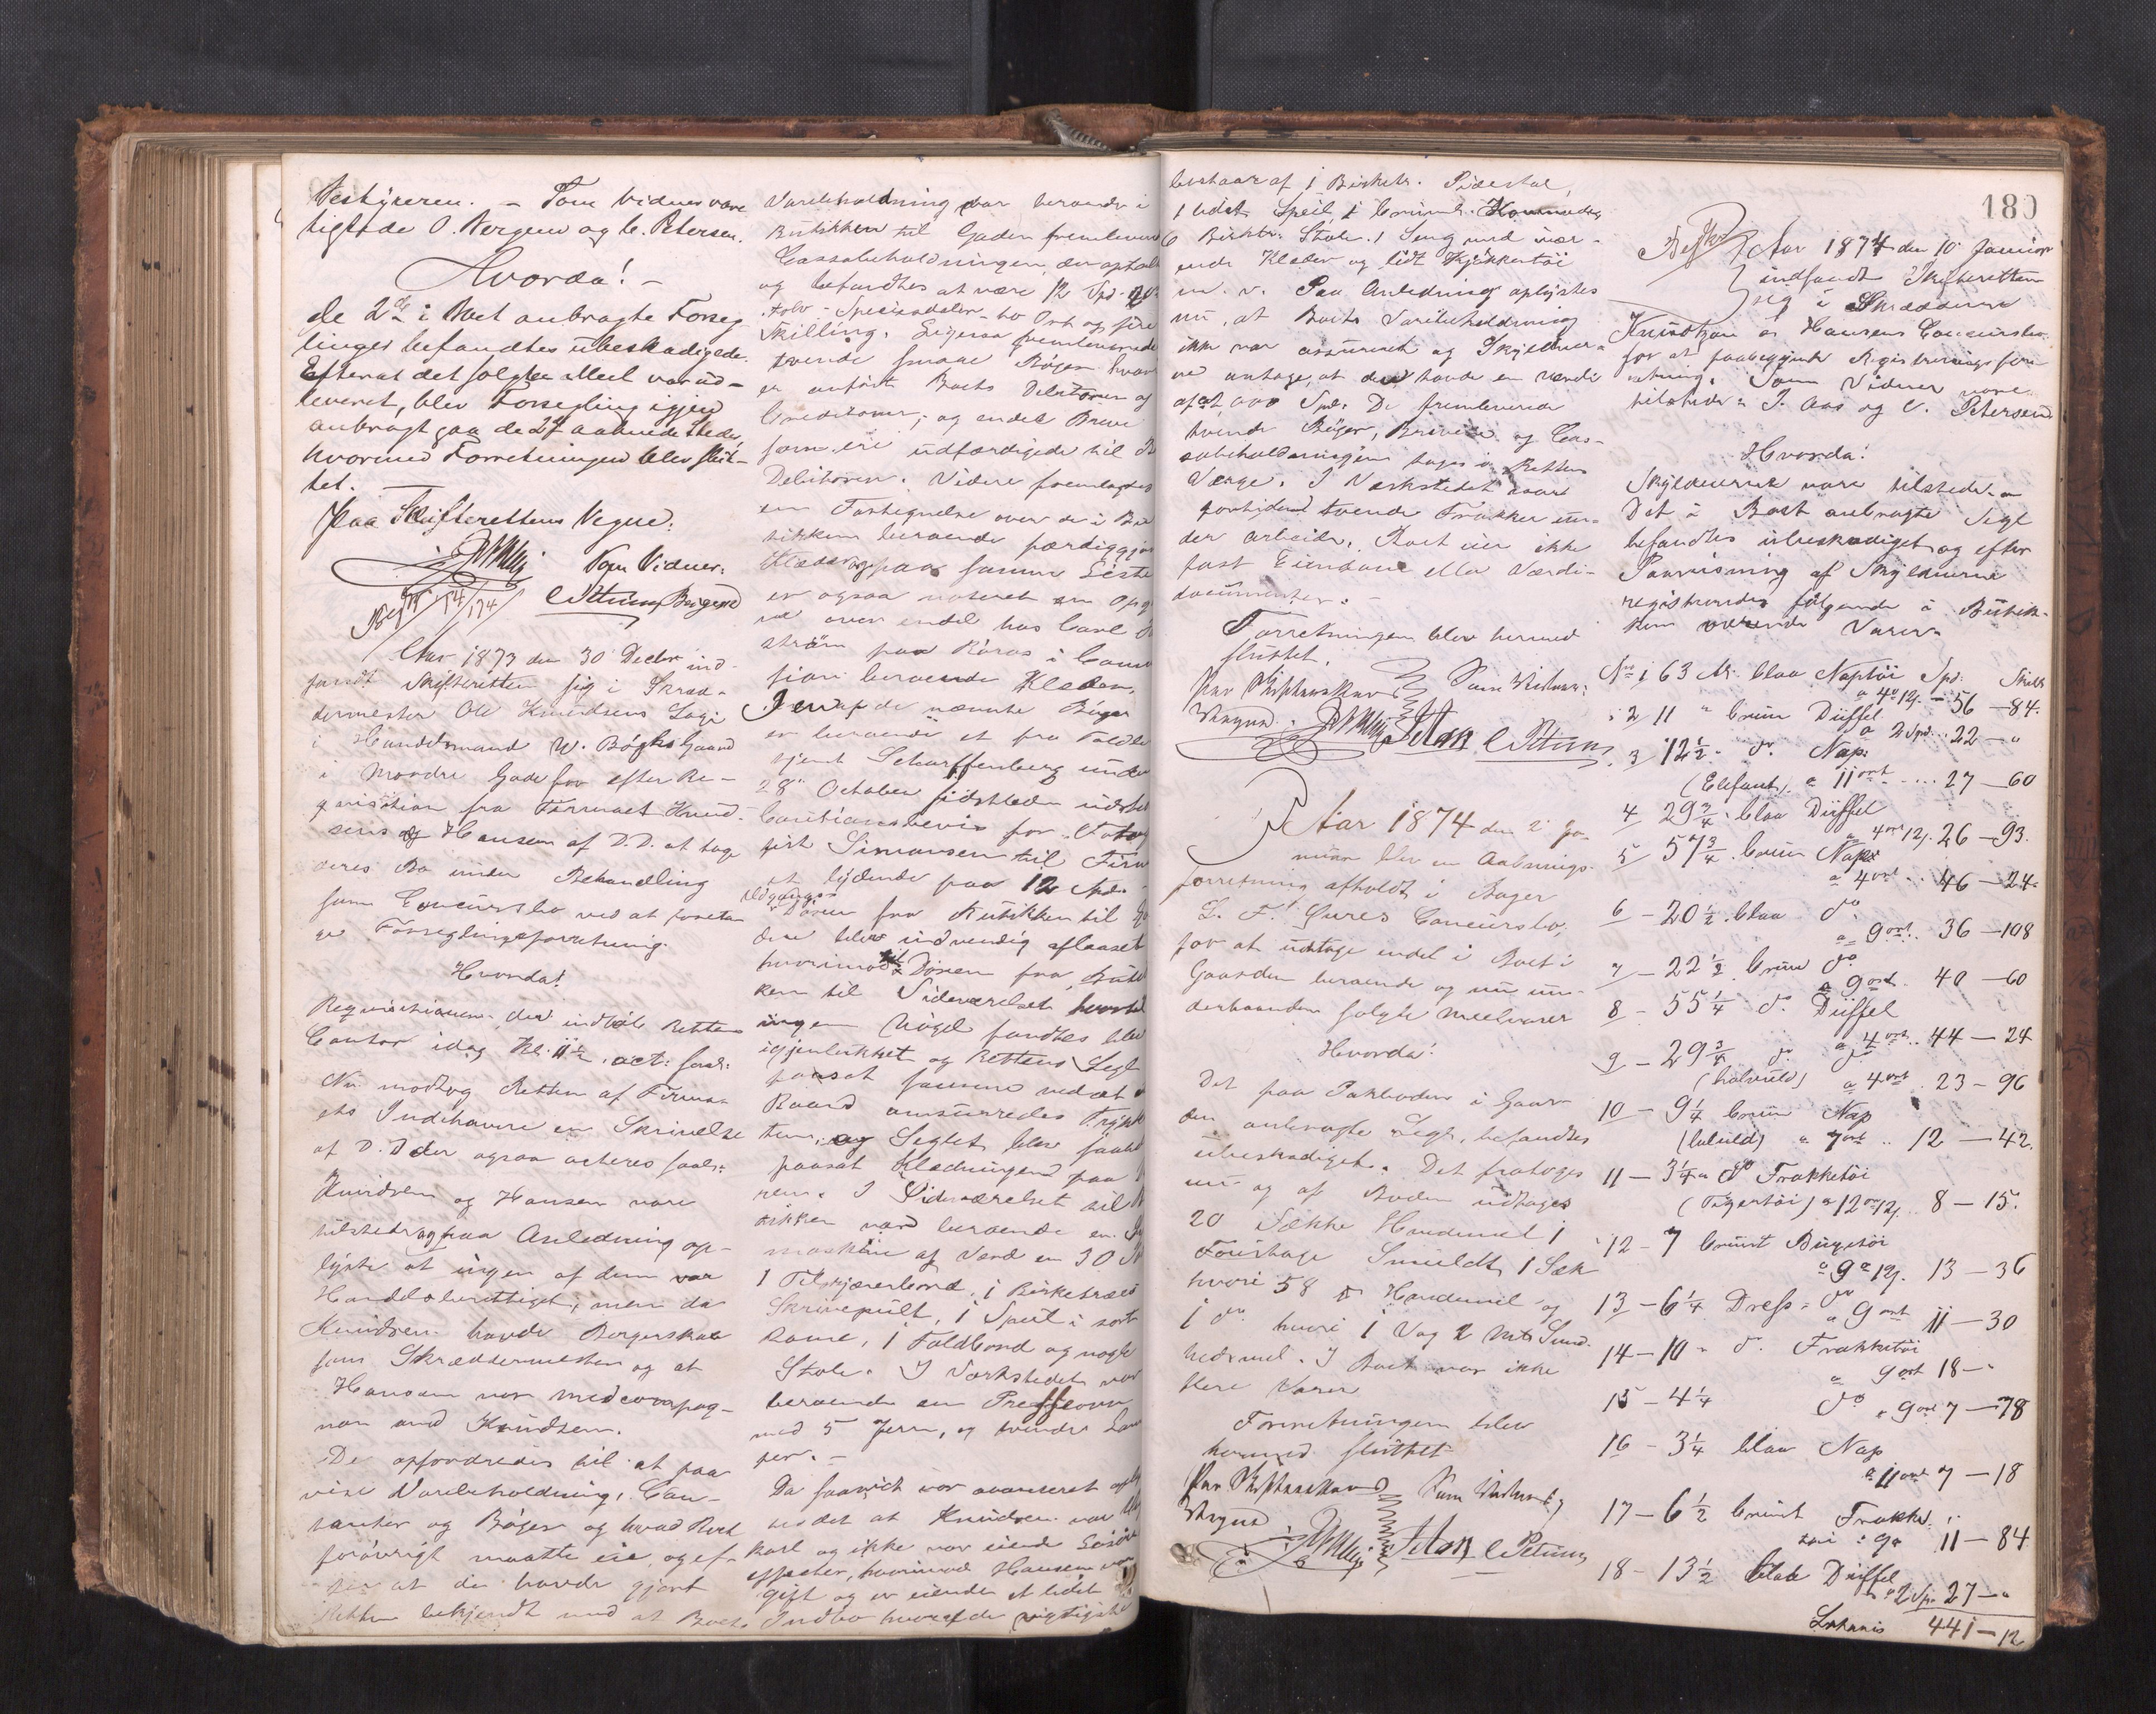 Bestyreren. – Som Vidner vare
O. Bergene og C. Petersen.
Hvorda! –
de 2de i Boet anbragte Forseg
linger befandtes ubeskadigede.
Efterat det solgte Meel var ud-
leveret, blev Forsegling igjen
anbragt paa de 2de aabnede Steder,
hvormed Forretningen blev slut-
tet.
Paa Skifterettens Vegne:
Som Vidner:
CPetersen Bergene
Aar 1873 den 30 Decbr ind-
fandt Skifteretten sig i Skræd-
dermester Ole Knudsens Logi
i Handelsmand W. Bøghs Gaard
i Nordre Gade for efter Re-
qvisition fra Firmaet Knud-
sens & Hansen af D.D. at tage
deres Bo under Behandling
som Concursbo ved at foreta-
ge Forseglingsforretning.
Hvorda!
Reqvisitionen, der indkom Rettens
Contor idag Kl. 11½, act: saal:
Nu modtog Retten af Firma-
ets Indehavere en Skrivelse
af D.D der ogsaa acteres saal:
Knudsen og Hansen vare
tilstede og paa Anledning op-
lyste at ingen af dem var
Handelsberettiget, men da
Knudsen havde Borgerskab
som Skræddermester og at
Hansen var medcompag-
non med Knudsen.
De opfordredes til at paa
vise Varebeholdning, Con-
tanter og Bøger og hvad Boet
forøvrigt maatte eie, og ef-
ter at de havde gjort
Retten bekjendt med at Boets
Varebeholdning var beroende i
Butikken til Gaden fremleveredes
Cassabeholdningen, der optaltes
og befandtes at være 12 Spd.
tolv Speciedaler – to Ort og fire
Skilling. Ligesaa fremleveredes
tvende smaae Bøger hvori
er anført Boets Debitorer og
Creditorer; og endel Breve
som ere udfærdigede til
Debitorer. Videre fremlagdes
en Fortegnelse over de i Bu
tikken beroende færdiggjorte
Klæder og paa samme Liste
er ogsaa noteret en Opg
ve over endel hos Carl
strøm paa Røros i Com
sion beroende Klæder.
I en af de nævnte Bøger
er beroende et fra Told
tjent Scharffenberg under
28de October sidstleden udsted
Cautionsbevis for Fotog
gist Simonsen til Firm
et lydende paa 12 Spd.
Udgangs
Døren fra Butikken til Ga
den blev indvendig aflaaset
hvorimod til Døren fra Butik
ken til Sideværelset hvortil
ingen Nøgel fandtes blev
igjenlukket og Rettens Segl
paasat samme ved at et
Baand omsurredes
og Seglet blev saaledes
paasat Klædningen paa
ren. I Sideværelset til
tikken var beroende en
maskine af Værd en 30
1 Tilskjærerbord, 1 Birketræes
Skrivepult, 1 Speil i sort
Rame, 1 Foldbord og nogle
Stole. I Værkstedet var
beroende en Presseovn
med 5 Jern, og tvende Lam
per. –
Da saavidt var avanceret op
stedet at Knudsen var
karl og ikke var eiende
effecter, hvorimod Hansen var
gift og er eiende et lidet
Indbo hvoraf de vigtigste
bestaar af 1 Birketr. Pidestal,
1 lidet Speil, 1 brunm. Kommode,
6 Birketr. Stole. 1 Seng med vær-
ende Klæder og lidt Kjøkkentøi
m. v. Paa Anledning oplystes
nu, at Boets Varebeholdning
ikke var assureret og Skyldner-
ne antage, at den havde en Værdi
af ca. 400 Spd. De fremleverede
tvende Bøger, Brevene og Cas-
sabeholdningen tages i Rettens
Værge. I Værkstedet vare
forhaanden tvende Frakker un-
der arbeide. Boet eier ikke
fast Eiendom eller Værdi-
documenter. –
Forretningen blev hermed
sluttet.
Paa Skifterettens
Vegne.
Som Vidner:
CPetersen
Aar 1874 den 2 Ja-
nuar blev en Aabnings-
forretning afholdt i Bager
L. F. Øures Concursbo,
for at udtage endel i Boet i
Gaarden beroende og nu un-
derhaanden solgte Meelvarer
Hvorda!
Det paa Pakboden i Gaar-
den anbragte Segl, befandtes
ubeskadiget. Det fratoges
nu og af Boden udtoges
20 Sække Havremel 1
Foustage Smuldt, 1 Sæk
hvori 58 ℔ Havremel og
1 do hvori 1 Vog 2 Mk Sund-
hedsmel. I Boet var ikke
flere Varer
Forretningen blev
hermed sluttet
Paa Skifterettens
Vegne
Som Vidner
CPetersen
180
Aar 1874 den 10 Januar
indfandt Skifteretten
sig i Skrædderne
Knudsen og Hansens Concursbo
for at paabegynde Registreringsfor-
retning. Som Vidner vare
tilstede: J. Aas og C. Petersen
Hvorda!
Skyldnerne vare tilstede.
Det i Boet anbragte Segl
befandtes ubeskadiget og efter
Paavisning af Skyldnerne
registreredes følgende i Butik-
ken værende Varer.
No 1, 63 Al. blaa Naptøi Spd. Skill.
a 4o 12s. – 56 – 84.
2 11 " brun Düffel
a 2 Spd. 22 – "
3 12½ – do. Nap:
(Elefant) a 11ort ... 27 – 60
4 29¾ blaa Düffel
a 4ort 12s. 26 – 93.
5 57¾ brun Nap
a 4ort .. 46 – 24
6 – 20½ blaa do
a 9ort. 36 – 108
7 – 22½ brun do
a 9ort. 40 – 60
8 – 55¼ do. Düffel
a 4ort .. 44 – 24
9 – 29¾ do do
(halvuld) a 4ort . 23 – 96
10 – 9¼ brun Nap
(heluld) a 7ort .. 12 – 42.
11 – 3¼ " do Frakketøi
(Tigertøi) a 12ort 12s. 8 – 15.
12 – 7 brunt Buxetøi
a 9o 12s. 13 – 36
13 – 6¼ Dress – do
a 9ort 11 – 30
14 – 10 " do. Frakketøi
a 9ort 18 – "
15 – 4¼ do
a 9ort 7 – 78
16 – 3¼ blaa Nap
a 11ort 7 – 18
17 – 6½ brunt Frakke-
tøi a 9o 11 – 84
18 – 13½ blaa Düffel
a 2 Sp. 27 – "
Lateris 441 – 12